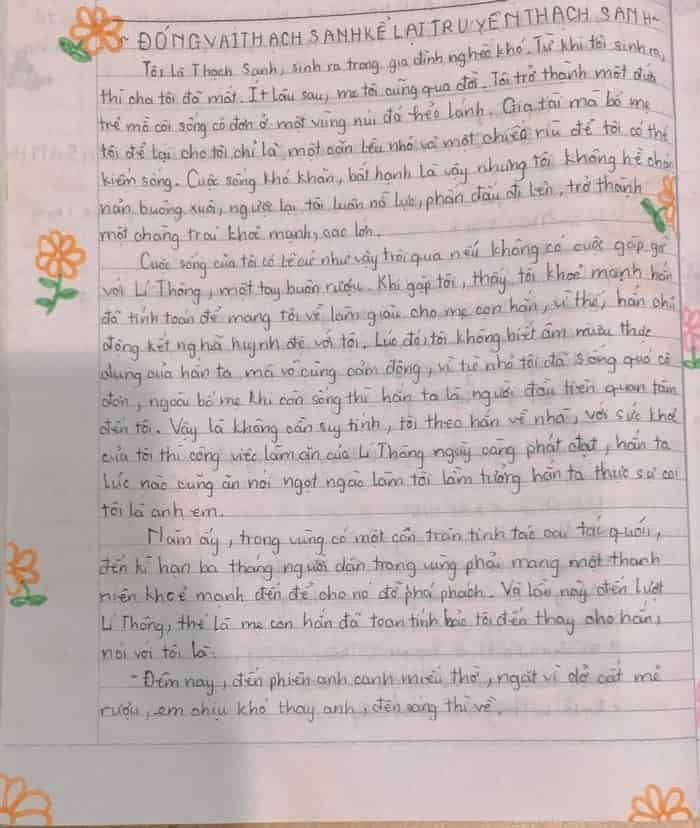 ~ ĐÓNG VAI THẠCH SANH KỂ LẠI TRUYỆN THẠCH SANH ~
Tôi là Thạch Sanh, sinh ra trong gia đình nghèo khó. Từ khi tôi sinh ra,
thì cha tôi đã mất. Ít lâu sau, mẹ tôi cũng qua đời. Tôi trở thành một đứa
trẻ mồ côi sống cô đơn ở một vùng núi đá hẻo lánh. Gia tài mà bố mẹ
tôi để lại cho tôi chỉ là một căn lều nhỏ và một chiếc rìu để tôi có thể
kiếm sống. Cuộc sống khó khăn, bất hạnh là vậy nhưng tôi không hề chán
nản buông xuôi, ngược lại tôi luôn nỗ lực, phấn đấu đi lên, trở thành
một chàng trai khoẻ mạnh, cao lớn.
Cuộc sống của tôi có lẽ cứ như vậy trôi qua nếu không có cuộc gặp gỡ
với Lí Thông, một tay buôn rượu. Khi gặp tôi, thấy tôi khoẻ mạnh hắn
đã tính toán để mang tôi về làm giàu cho mẹ con hắn, vì thế, hắn chủ
động kết nghĩa huynh đệ với tôi. Lúc đó, tôi không biết âm mưu thực
dụng của hắn ta mà vô cùng cảm động, vì từ nhỏ tôi đã sống quá cô
đơn, ngoài bố mẹ khi còn sống thì hắn ta là người đầu tiên quan tâm
đến tôi. Vậy là không cần suy tính, tôi theo hắn về nhà, với sức khoẻ
của tôi thì công việc làm ăn của Lí Thông ngày càng phát đạt, hắn ta
lúc nào cũng ăn nói ngọt ngào làm tôi lầm tưởng hắn ta thực sự coi
tôi là anh em.
Năm ấy, trong vùng có một con trăn tinh tác oai tác quái,
đến kì hạn ba tháng người dân trong vùng phải mang một thanh
niên khoẻ mạnh đến để cho nó đỡ phá phách. Và lần này đến lượt
Lí Thông, thế là mẹ con hắn đã toan tính bảo tôi đến thay cho hắn,
nói với tôi là:
- Đêm nay, đến phiên anh canh miếu thờ, ngặt vì dở cất mẻ
rượu, em chịu khó thay anh, đến sáng thì về.